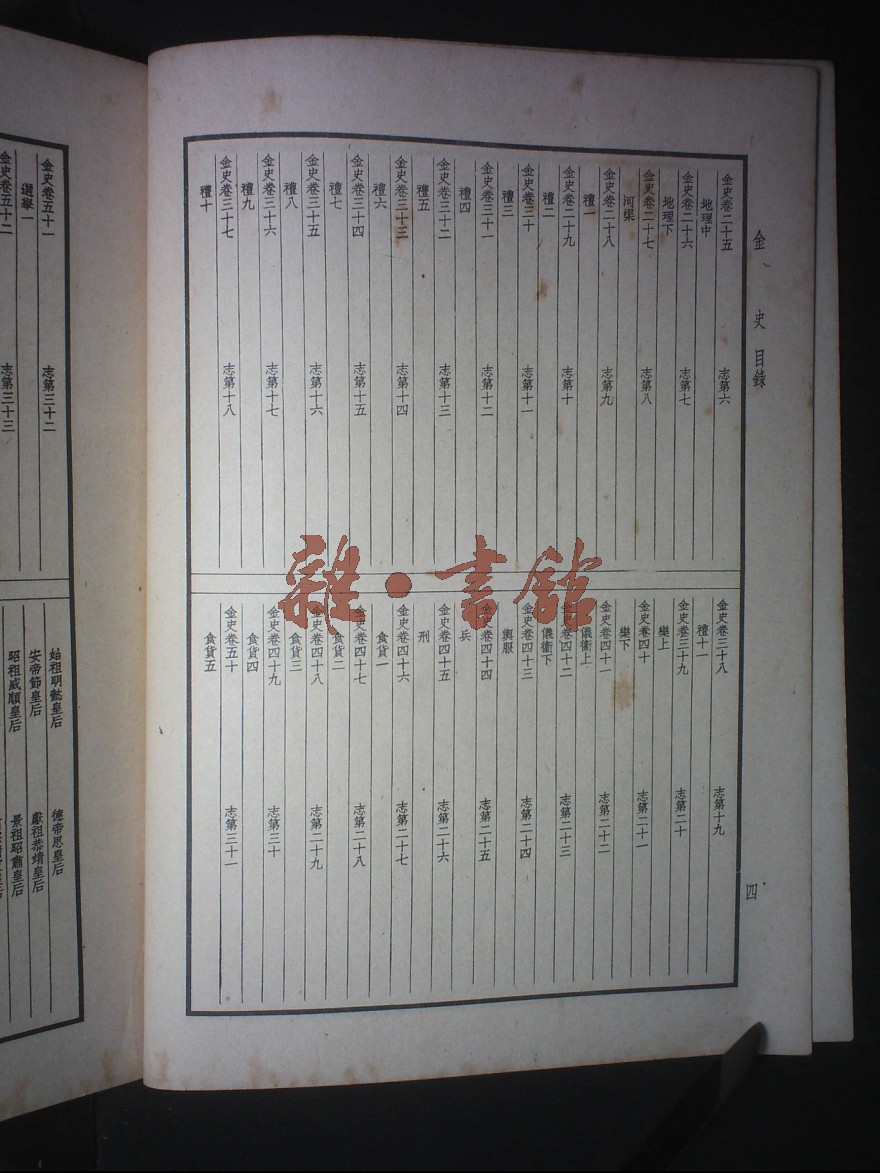 金史目錄
四
金史卷二十五 志第六
地理中
金史卷二十六 志第七
地理下
金史卷二十七 志第八
河渠
金史卷二十八 志第九
禮一
金史卷二十九 志第十
禮二
金史卷三十 志第十一
禮三
金史卷三十一 志第十二
禮四
金史卷三十二 志第十三
禮五
金史卷三十三 志第十四
禮六
金史卷三十四 志第十五
禮七
金史卷三十五 志第十六
禮八
金史卷三十六 志第十七
禮九
金史卷三十七 志第十八
禮十
金史卷三十八 志第十九
禮十一
金史卷三十九 志第二十
樂上
金史卷四十 志第二十一
樂下
金史卷四十一 志第二十二
儀衞上
金史卷四十二 志第二十三
儀衞下
金史卷四十三 志第二十四
輿服
金史卷四十四 志第二十五
兵
金史卷四十五 志第二十六
刑
金史卷四十六 志第二十七
食貨一
金史卷四十七 志第二十八
食貨二
金史卷四十八 志第二十九
食貨三
金史卷四十九 志第三十
食貨四
金史卷五十 志第三十一
食貨五
金史卷五十一 志第三十二
選舉一
金史卷五十二 志第三十三
始祖明懿皇后 德帝思皇后
安帝節皇后 獻祖恭靖皇后
昭祖威順皇后 景祖昭肅皇后
雜·書館